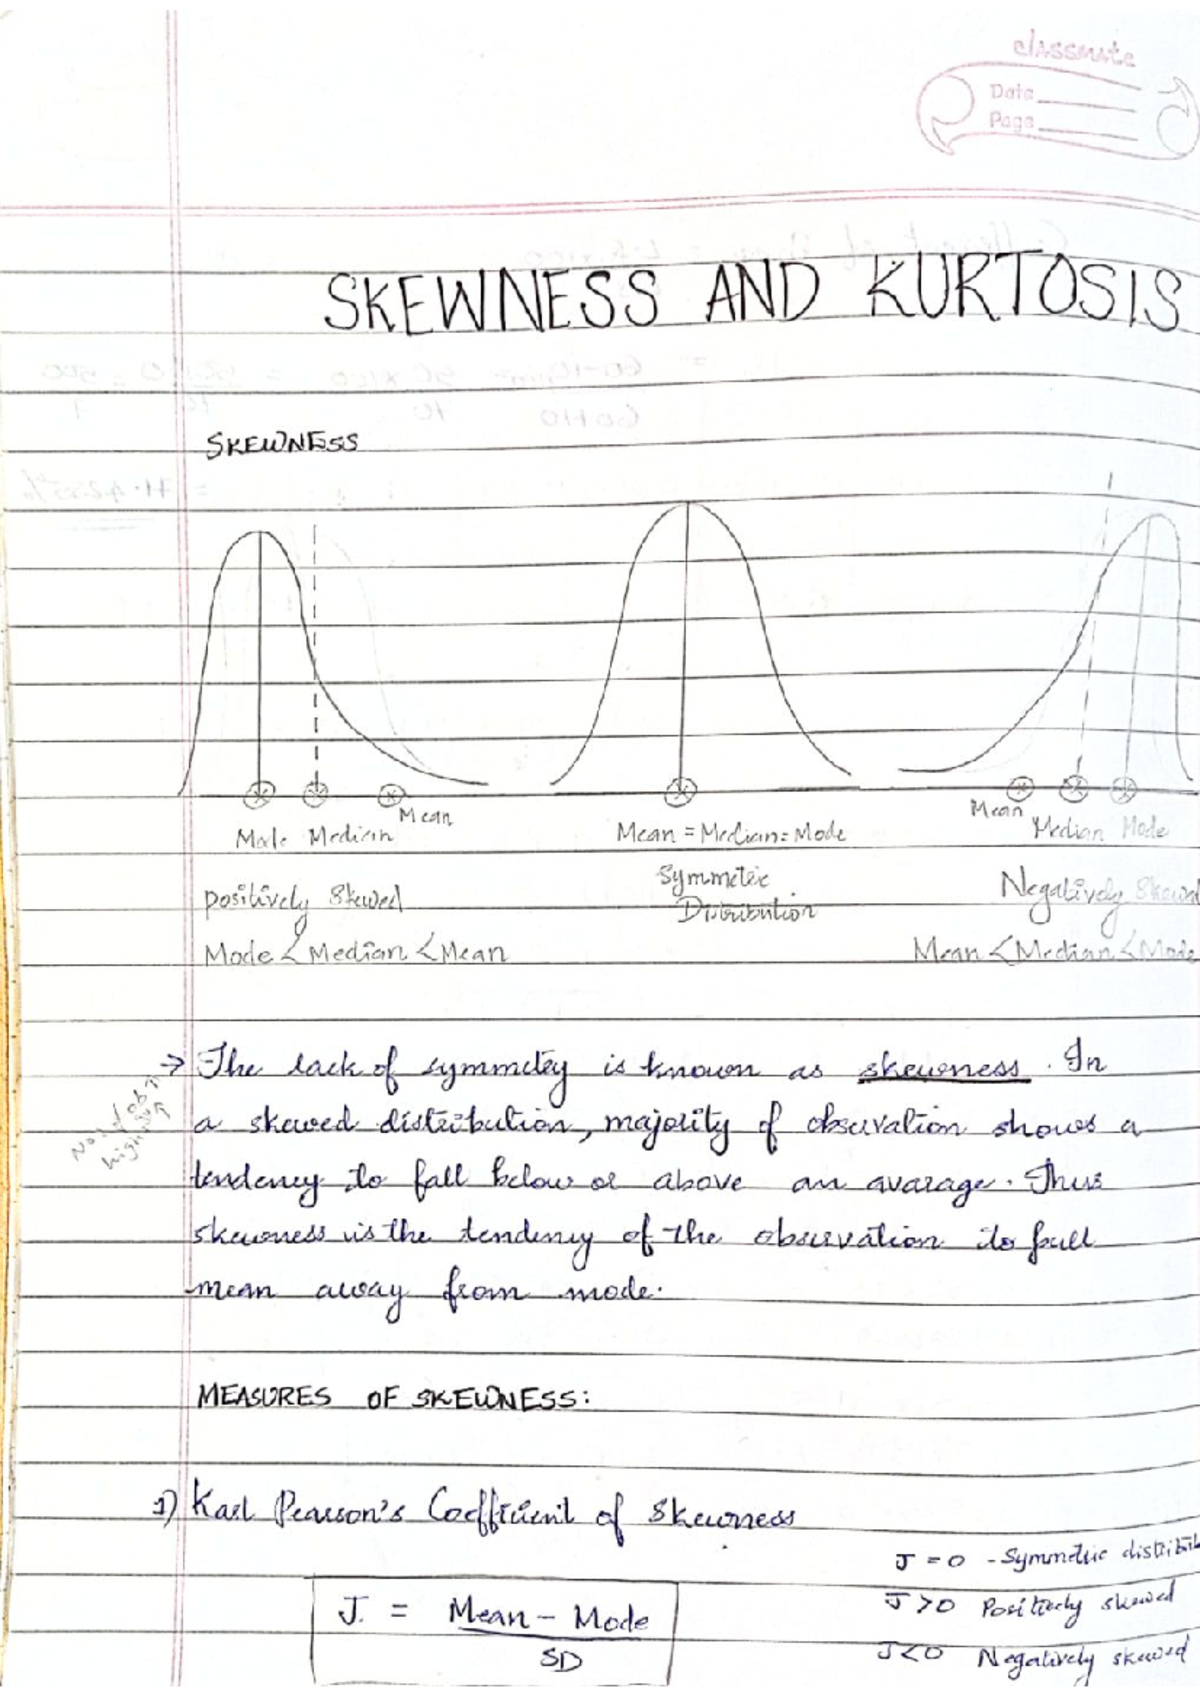 classmate
Date
Page
SKEWNESS AND KURTOSIS
SKEWNESS
Mode Median Mean
Mean = Median = Mode
Mean Median Mode
positively Skewed
Symmetric
Distribution
Negatively Skewed
Mode < Median < Mean
Mean < Median < Mode
→ The lack of symmetry is known as skewness. In
a skewed distribution, majority of observation shows a
tendency to fall below or above an avarage. Thus
skewness is the tendency of the observation to pull
mean away from mode.
No. of obs
high
MEASURES OF SKEWNESS:
1) Karl Pearson's Coefficient of Skewness
J = 0 - Symmetric distrib
J > 0 Positively skewed
J < 0 Negatively skewed
J = Mean - Mode
SD